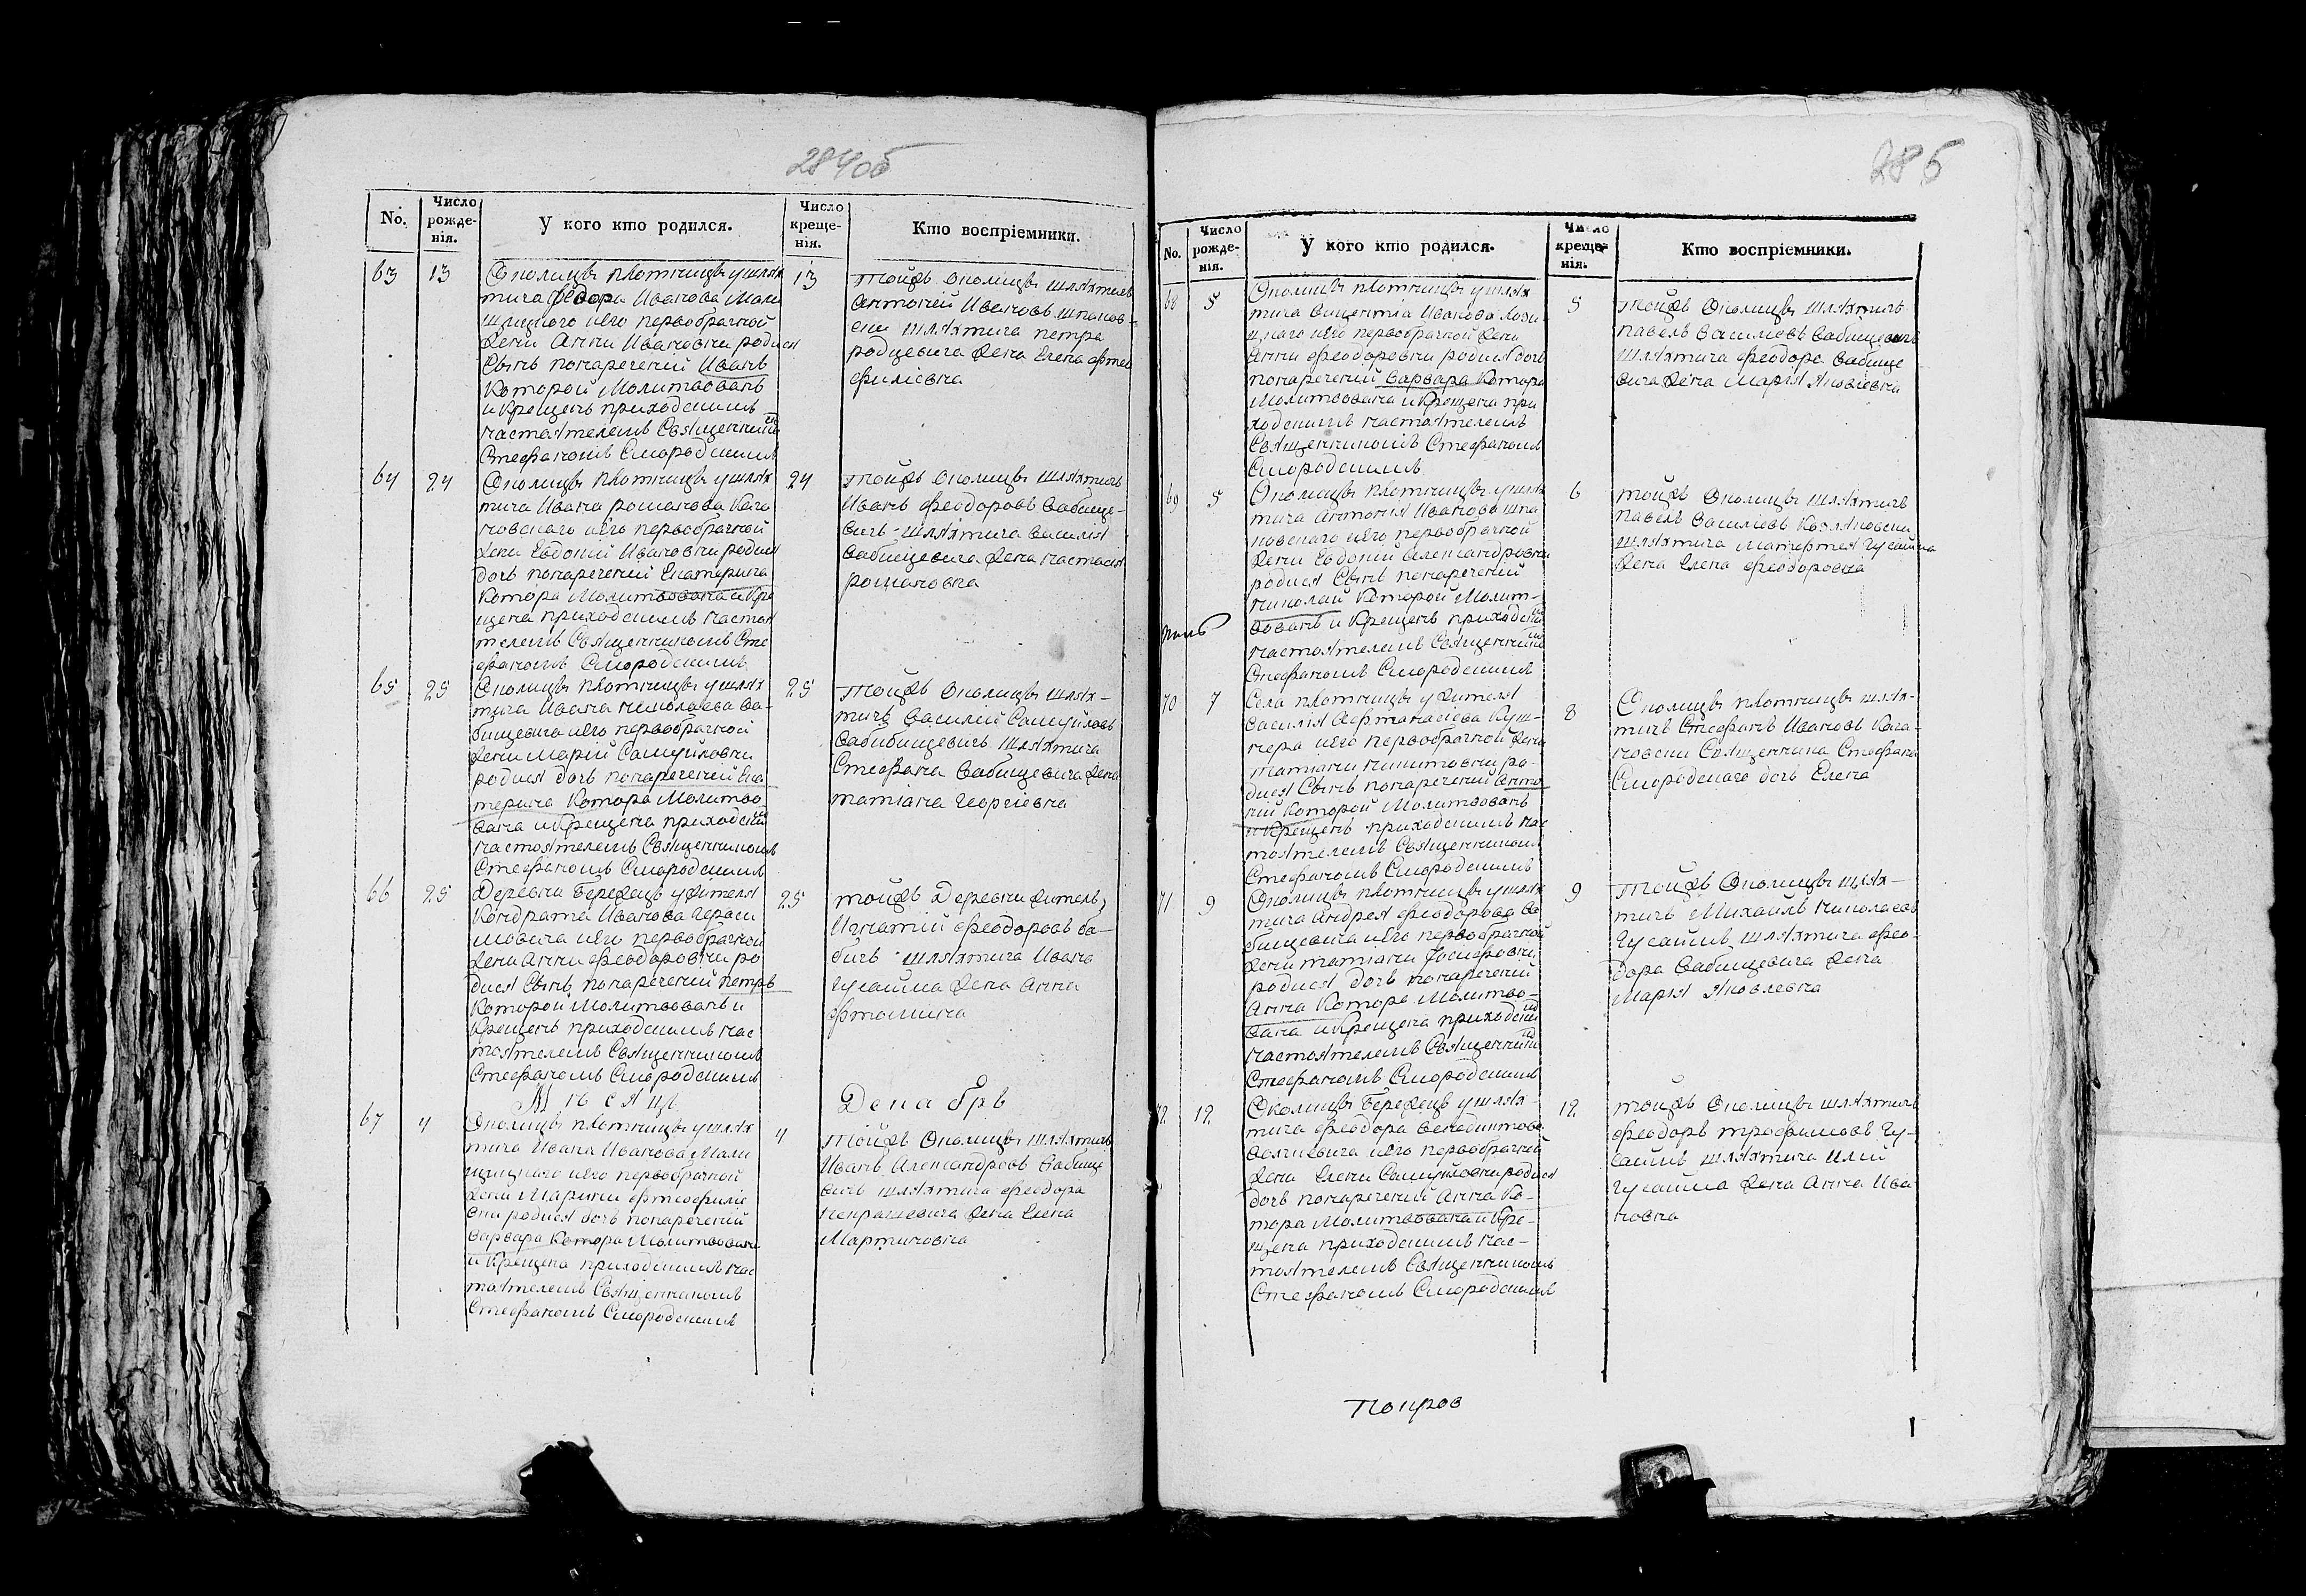 284об
No.
Число рожденія.
У кого кто родился.
Число крещенія.
Кто воспріемники.
63 13
Околицы плотницы у шлях
тича Федора Иванова Мали
щицкого иего первобрачной
жены Анны Ивановны родился
Сынъ понареченій Иванъ
Которой Молитвованъ
и Крещенъ приходскимъ
настоятелемъ Священником
Стефаномъ Смородскимъ
13
тойжъ Околицы шляхтичъ
Антоней Ивановъ шпаков-
ски шляхтича петра
родцевича жена Елена
филіевна
64 24
Околицы плотницы у шлях
тича Ивана романова Кага
новскаго иего первобрачной
жены Евдокіи Ивановны родися
дочь понареченій Екатерина
Котора Молитвована и Кре
щена приходскимъ настоя
телемъ Священникомъ Сте
фаномъ Смородскимъ
24
тойжъ Околицы шляхтичъ
Иванъ Феодоровъ Бабище-
вичъ шляхтича Василія
Бабищевича жена настасія
романовна
65 25
Околицы плотницы у шлях
тича Ивана николаева Ба-
бищевича иего первобрачной
жены Маріи Самуиловны
родися дочь понареченій Ека
терина Котора Молитво
вана и Крещена приходским
настоятелемъ Священникомъ
Стефаномъ Смородскимъ
25
тойжъ Околицы шлях-
тичъ Василій Самуйловъ
Бабибищевичъ шляхтича
Стефана Бабищевича жена
татіана Георгіевна
66 25
Деревни Бережцъ ужителя
Кондрата Иванова Гераси
мовича иего первобрачной
жены Анны Феодоровны ро
дися Сынъ понареченій петръ
Которой Молитвованъ и
Крещенъ приходскимъ нас
тоятелемъ Священникомъ
Стефаномъ Смородскимъ
25
тойжъ Деревни житель
Игнатій Феодоровъ ба-
бичъ шляхтича Ивана
Гусаима жена Анна
Фтомина
Мѣсяцъ Декабрь
67 4
Околицы плотницы у шлях
тича Ивана Иванова Мали
щицкаго иего первобрачной
жены Марины
родися дочь понареченій
варвара Котора Молитвована
и Крещена приходскимъ нас
тоятелемъ Священникомъ
Стефаномъ Смородскимъ
4
тойжъ Околицы шляхтичъ
Иванъ Александровъ Бабище
вичъ шляхтича Феодора
Некрашевича жена Елена
Мартиновна
285
No.
Число рожденія.
У кого кто родился.
Число крещенія.
Кто воспріемники.
68 5
Околицы плотницы у шлях
тича Викентіа Иванова
иего первобрачной жены
Анны Феодоровны родися дочь
понареченій варвара Котора
Молитвована и Крещена при
ходскимъ настоятелемъ
Священникомъ Стефаномъ
Смородскимъ
5
тойжъ Околицы шляхтичъ
павелъ Василіевъ Бабищевичъ
шляхтича Феодора Бабище
вича жена Марія Яковлевна
69 5
Околицы плотницы у шлях
тича Антонія Иванова шпа
ковскаго иего первобрачной
жены Евдокіи Александровны
родися Сынъ понареченій
николай Которой Молит-
вованъ и Крещенъ приходским
настоятелемъ Священником
Стефаномъ Смородскимъ
6
тойжъ Околицы шляхтичъ
павелъ Василіевъ Козляковски
шляхтича Матфтея Гусаима
жена Елена Феодоровна
70 7
Села плотницы у жителя
Василія Афтанасіева Куш-
нера иего первобрачной жены
татіаны никитовны ро-
дися Сынъ понареченій Анто
ній Которой Молитвованъ
и Крещенъ приходскимъ нас
тоятелемъ Священникомъ
Стефаномъ Смородскимъ
8
Околицы плотницы шлях-
тичъ Стефанъ Ивановъ Кага-
новски Священника Стефана
Смородскаго дочь Елена
71 9
Околицы плотницы у шлях
тича Андрея Феодорова Ба
бищевича иего первобрачной
жены татіаны
родися дочь понареченій
Анна Котора Молитво-
вана и Крещена приходским
настоятелемъ Священником
Стефаномъ Смородскимъ
9
тойжъ Околицы шлях-
тичъ Михаилъ николаевъ
Гусаимъ шляхтича Фео-
дора Бабищевича жена
Марія Яковлевна
72 12
Околицы Бережцъ у шлях-
тича Феодора
иего первобрачной
жены Елены Самуйловны родися
дочь понареченій Анна Ко-
тора Молитвована и Кре-
щена приходскимъ нас-
тоятелемъ Священникомъ
Стефаномъ Смородскимъ
12
тойжъ Околицы шляхтичъ
Феодоръ трофимовъ Гу-
саимъ шляхтича Иліи
Гусаима жена Анна Ива
новна